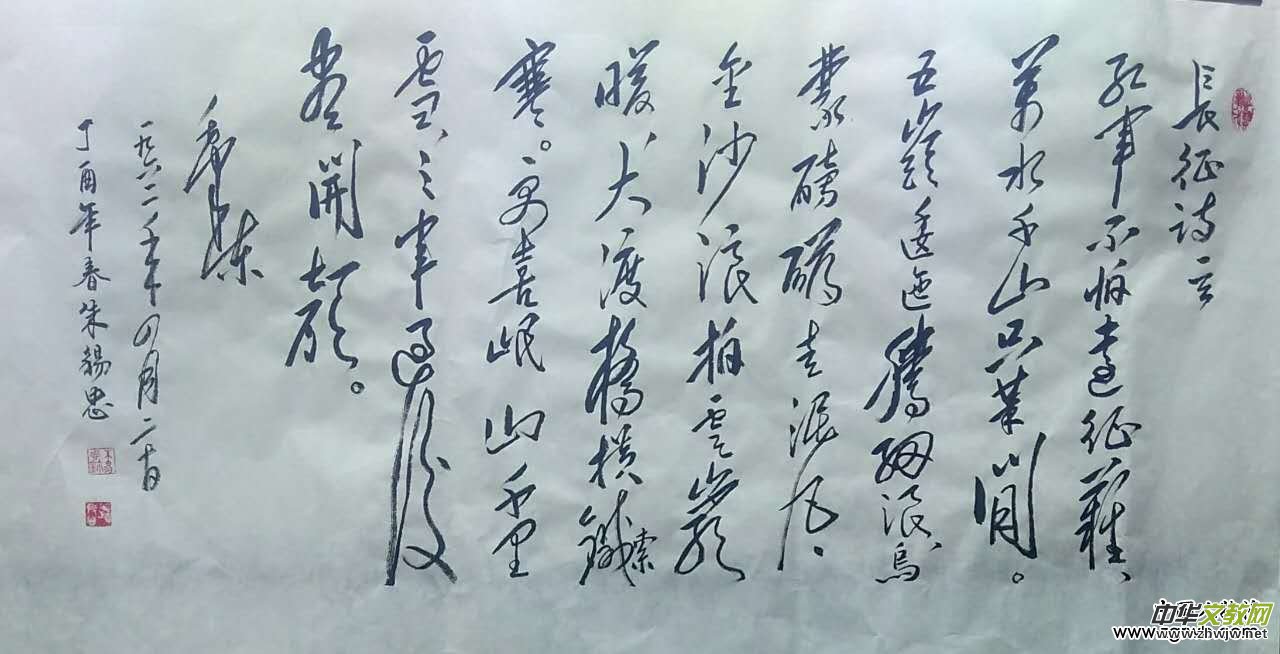 長征诗一首
红軍不怕遠征難、
萬水千山只等閒。
五嶺逶迤騰细浪烏
蒙磅礴走泥丸、
金沙浪拍雲崖
暖、大渡橋横鐵索
寒。更喜岷山千里
雪、三軍過後
盡開顔。
毛澤东
一九六二年四月二十日
丁酉年春朱錫忠
中华文教网
www.zhwjw.net